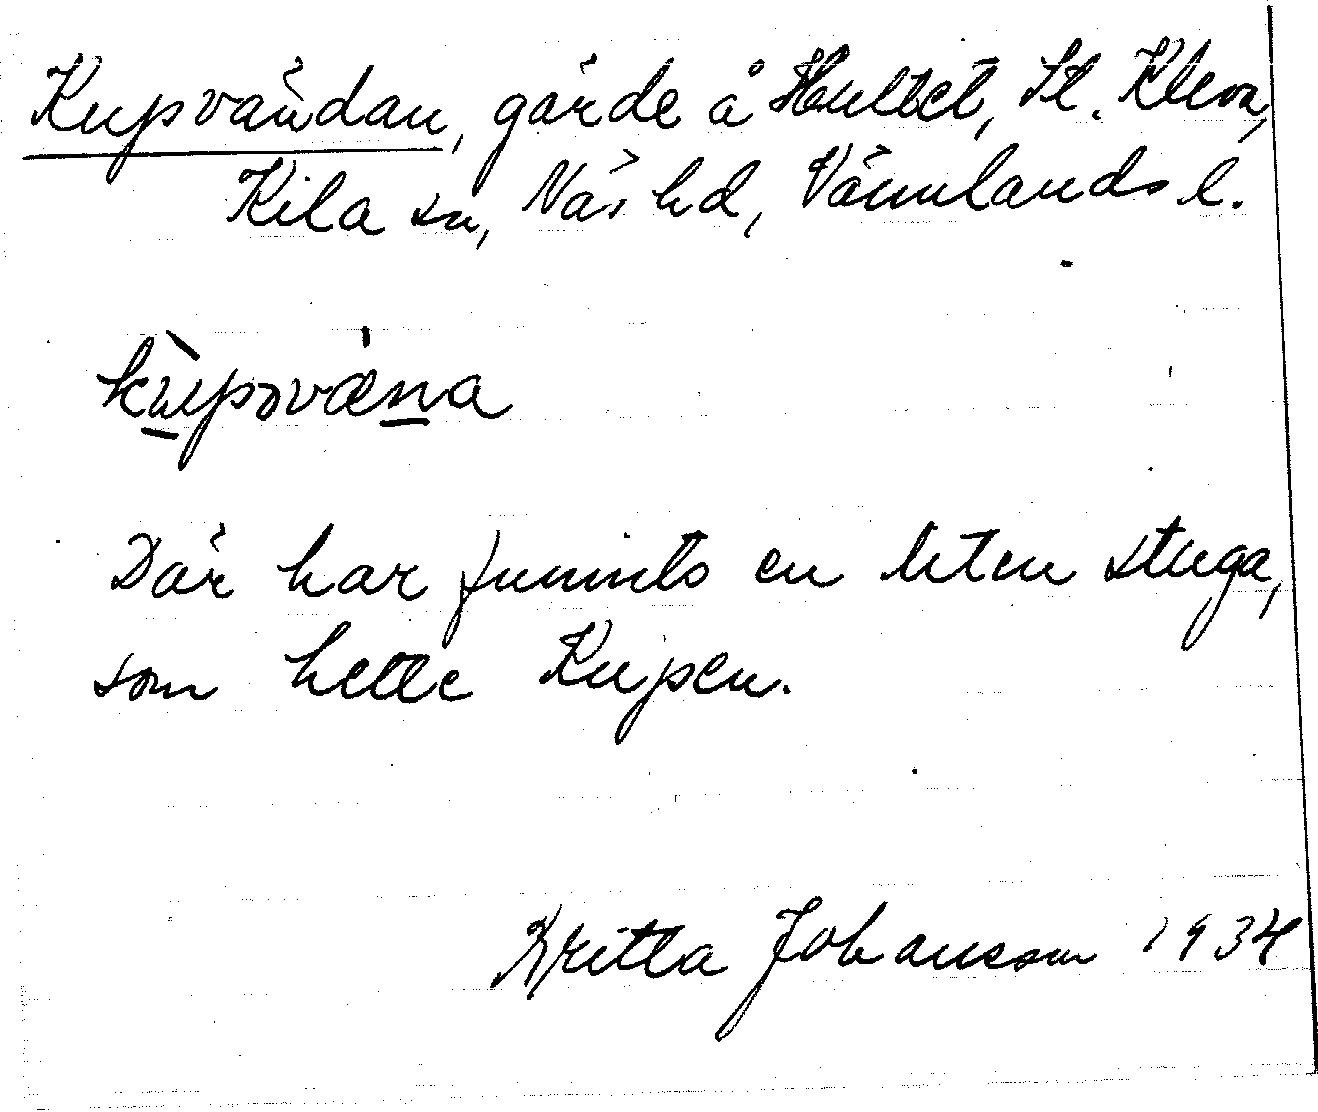 Kupvändan, gärde å Hultet, St. Kleva,
Kila sn, Näs hd, Värmlands l.
kupəvæna
Där har funnits en liten stuga,
som hette Kupen.
Britta Johansson 1934